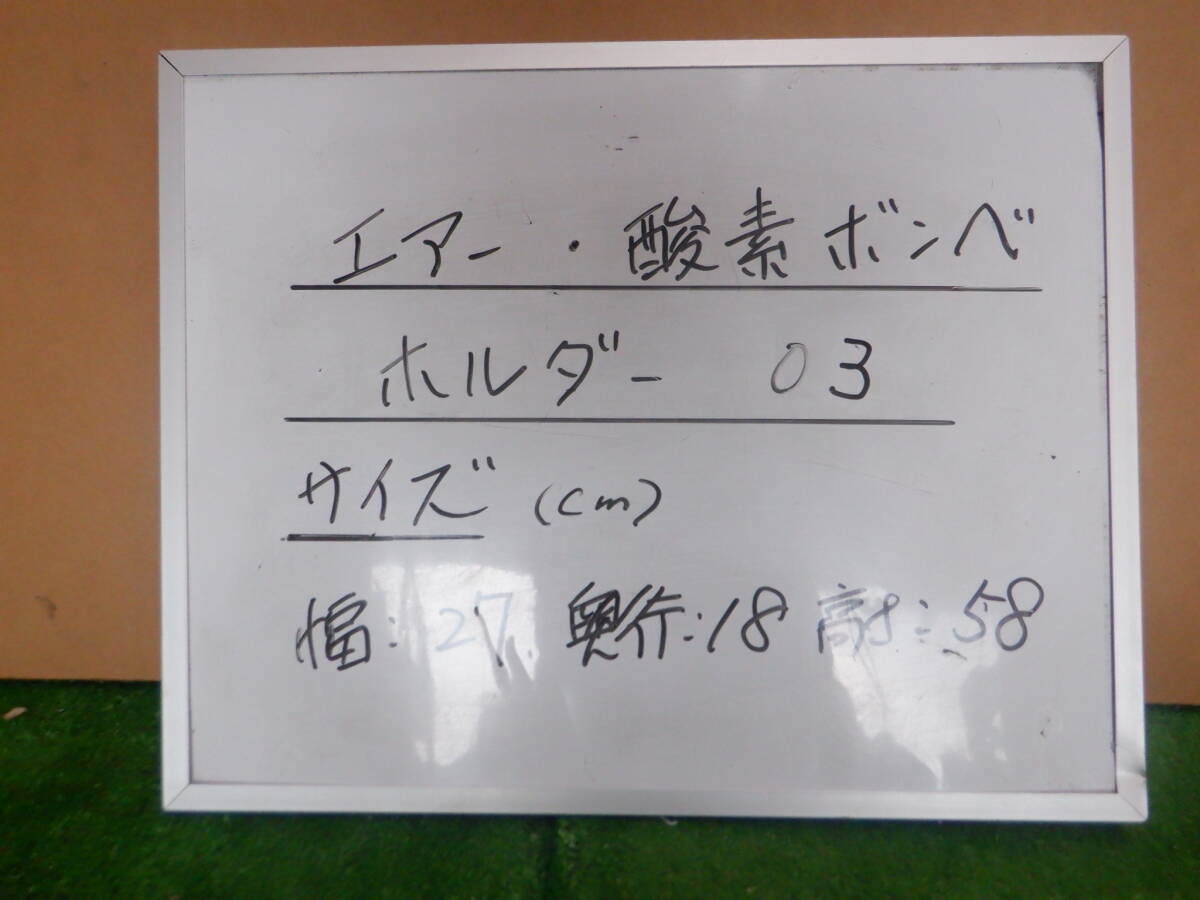 エアー・酸素ボンベ
ホルダー 03
サイズ (cm)
幅:27 奥行:18 高さ:58